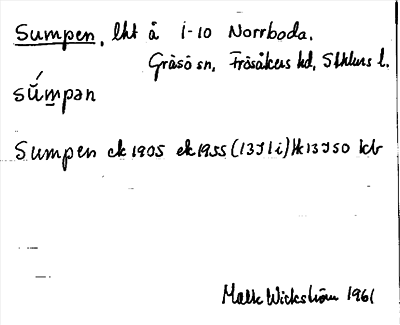 Sumpen, lht å 1-10 Norrboda.
Gräsö sn, Frösåkers hd, Sthlms l.
sŭ́m̲pən
Sumpen ek 1905 ek 1955 (13I1i) Hk 13I S0 kb
Malte Wickström 1961